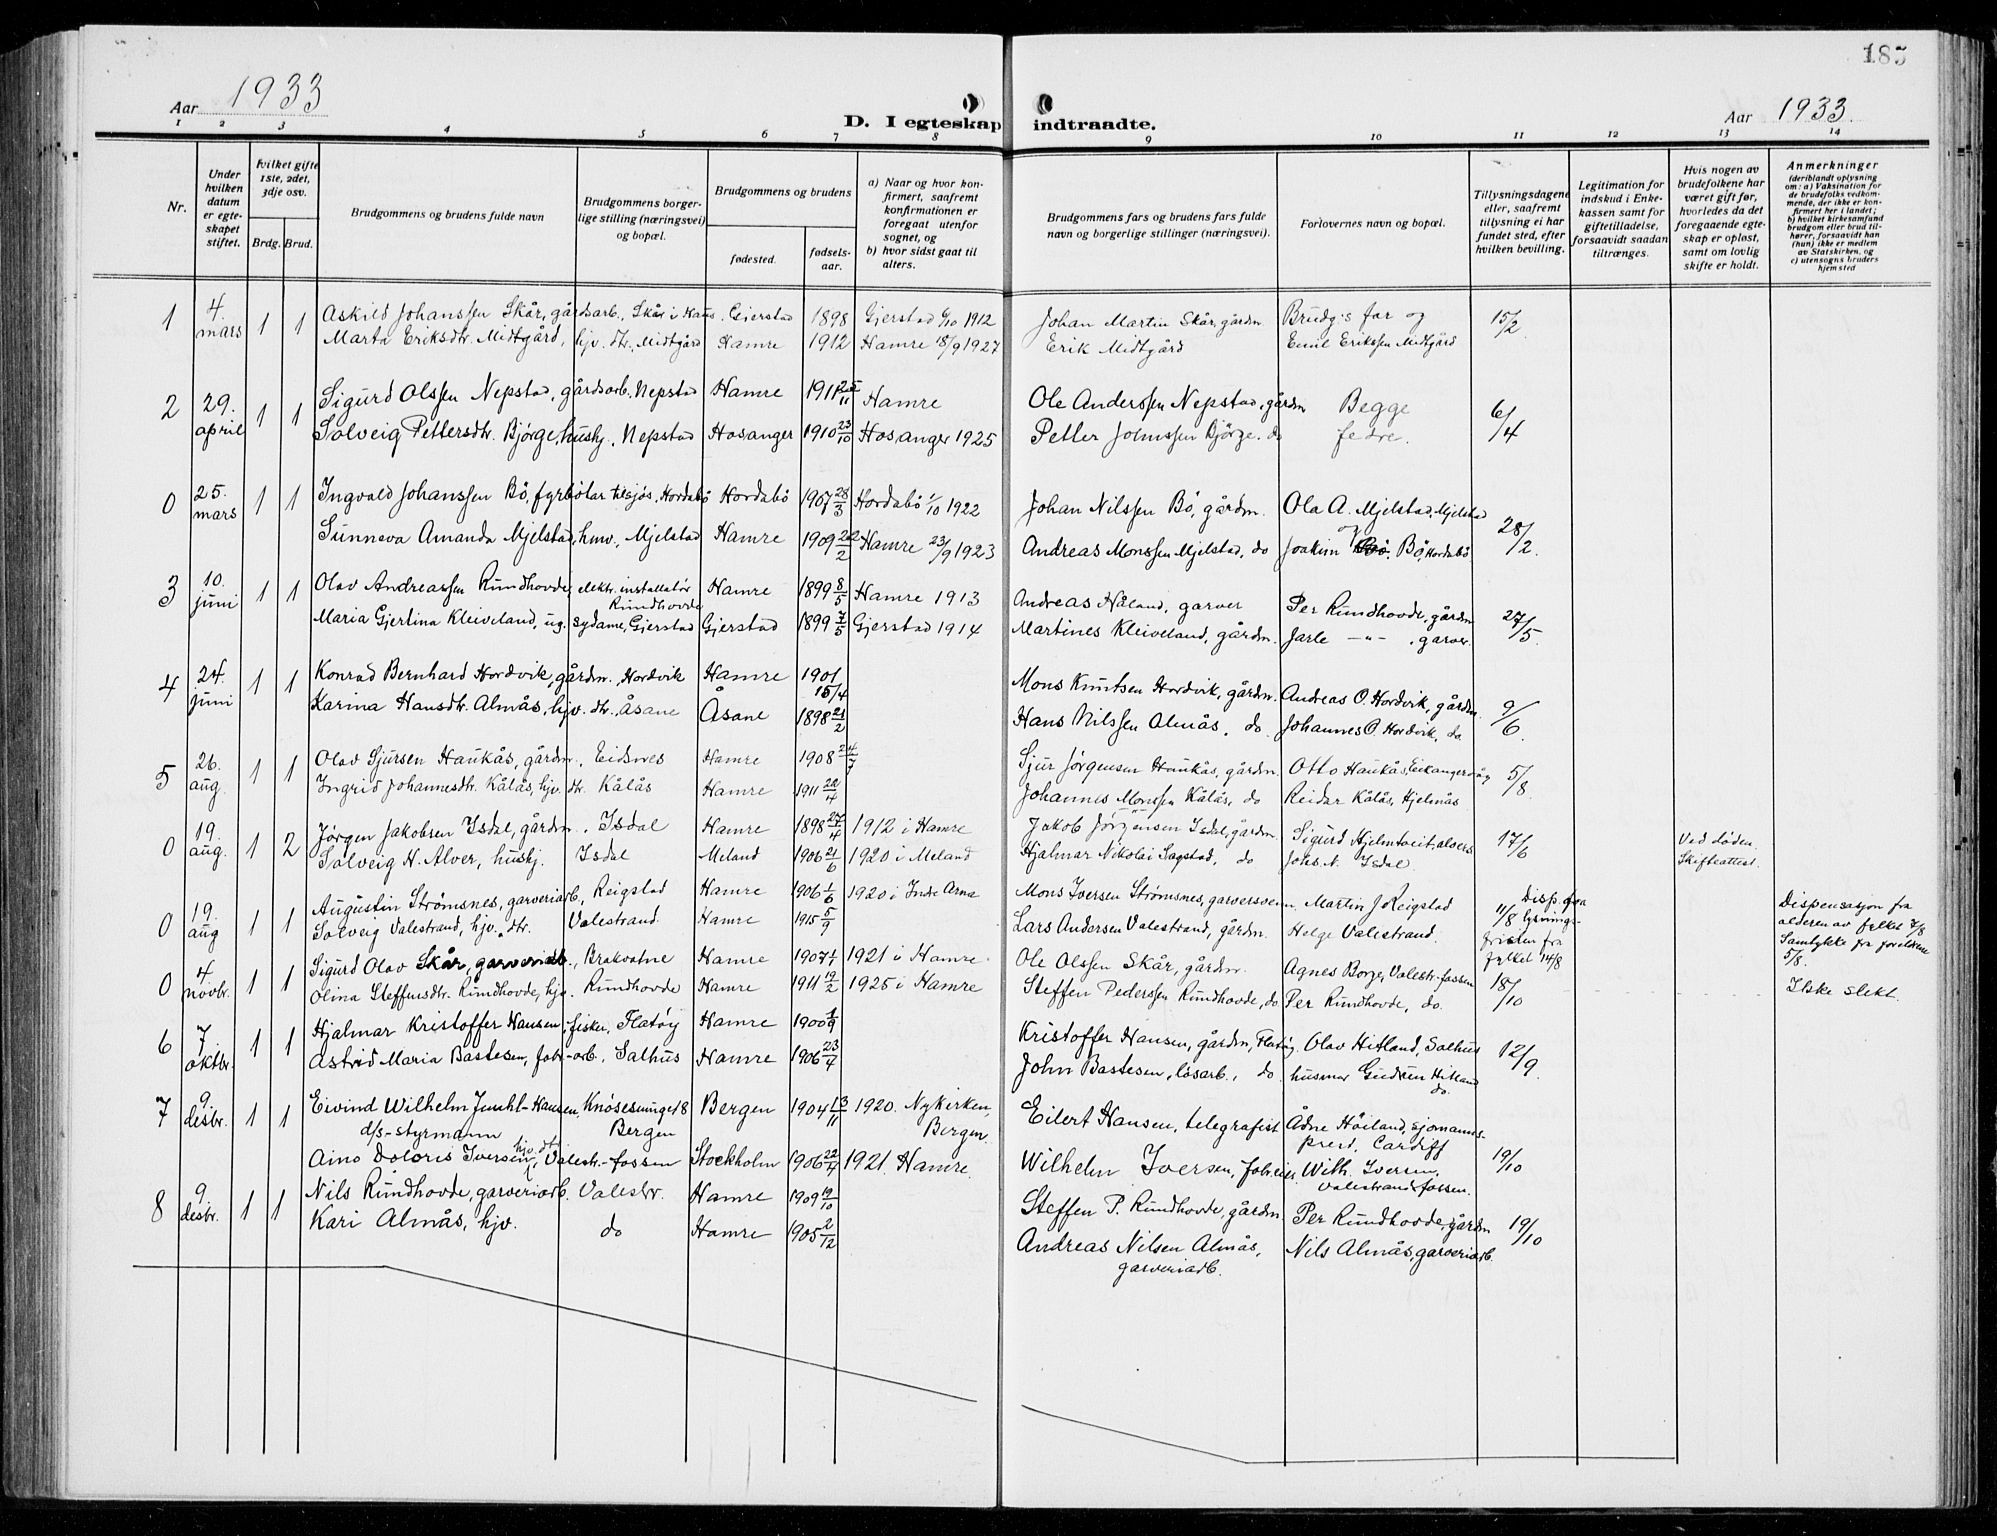 185
Aar 1933
D. I egteskap indtraadte.
Aar 1933.
1 2 3 4 5 6 7 8 9 10 11 12 13 14
Nr.
Under hvilken datum er egteskapet stiftet.
Hvilket gifte 1ste, 2det, 3dje osv.
Brdg. Brud.
Brudgommens og brudens fulde navn
Brudgommens borgerlige stilling (næringsvei) og bopæl.
Brudgommens og brudens
fødested.
fødselsaar.
a) Naar og hvor konfirmert, saafremt konfirmationen er foregaat utenfor sognet, og
b) hvor sidst gaat til alters.
Brudgommens fars og brudens fars fulde navn og borgerlige stillinger (næringsvei).
Forlovernes navn og bopæl.
Tillysningsdagene eller, saafremt tillysning ei har fundet sted, efter hvilken bevilling.
Legitimation for indskud i Enkekassen samt for giftetilladelse, forsaavidt saadan tiltrænges.
Hvis nogen av brudefolkene har været gift før, hvorledes da det foregaaende egteskap er opløst, samt om lovlig skifte er holdt.
Anmerkninger (deriblandt oplysning om: a) Vaksination for de brudefolks vedkommende, der ikke er konfirmert her i landet; b) hvilket kirkesamfund brudgom eller brud tilhører, forsaavidt han (hun) ikke er medlem av Statskirken, og c) utensogns bruders hjemsted
1 4. mars 1 1 Askild Johanssen Skår, gårdsarb., Skår i Haus. Gjerstad 1898 Gjerstad 6/10 1912 Johan Martin Skår, gårdm. Brudg.s far og 15/2
Marta Eriksdtr. Midtgård, hjv. dtr., Midtgård Hamre 1912 Hamre 18/9 1927 Erik Midtgård Emil Erikssen Midtgård
2 29. april 1 1 Sigurd Olssen Nepstad, gårdsarb. Nepstad Hamre 1911 25/11 Hamre Ole Anderssen Nepstad, gårdm Begge 6/4
Solveig Pettersdtr. Bjørge, hushj., Nepstad Hosanger 1910 23/10 Hosanger 1925 Petter Johnssen Bjørge. do fedre.
0 25. mars 1 1 Ingvald Johanssen Bø, fyrbøtar tilsjøs, Hordabø Hordabø 1907 28/3 Hordabø 1/10 1922 Johan Nilssen Bø, gårdm. Ola A. Mjelstad, Mjelstad og 28/2.
Sunneva Amanda Mjelstad, hmv., Mjelstad Hamre 1909 22/2 Hamre 23/9 1923 Andreas Monssen Mjelstad, do Joakim Bø, Hordabø
3 10. juni 1 1 Olav Andreassen Rundhovde, elektr. installatør Rundhovde Hamre 1899 8/5 Hamre 1913 Andreas Håland, garver Per Rundhovde, gårdm 27/5.
Maria Gjertina Kleiveland, ug. sydame, Gjerstad Gjerstad 1899 7/5 Gjerstad 1914 Martines Kleiveland, gårdm. Jarle —"— , garver.
4 24. juni 1 1 Konrad Bernhard Hordvik, gårdm., Hordvik Hamre 1901 15/4 Mons Knutsen Hordvik, gårdm. Andreas O. Hordvik, gårdm. 9/6.
Karina Hansdtr. Almås, hjv. dtr., Åsane Åsane 1898 21/2 Hans Nilssen Almås, do. Johannes O. Hordvik, do
5 26. aug. 1 1 Olav Sjursen Haukås, gårdm., Eidsnes Hamre 1908 24/7 Sjur Jørgensen Haukås, gårdm. Otto Haukås, Eikangervåg 5/8.
Ingrid Johannesdtr. Kålås, hjv. dtr. Kålås Hamre 1911 22/4 Johannes Monssen Kålås, do Reidar Kålås, Hjelmås
0 19. aug. 1 2 Jørgen Jakobsen Isdal, gårdm., Isdal Hamre 1898 27/4 1912 i Hamre Jakob Jørgensen Isdal, gårdm. Sigurd Hjelmtveit, alvers 17/6 Ved døden.
Solveig N. Alver, hushj. Isdal Meland 1906 21/6 1920 i Meland Hjalmar Nikolai Sagstad, do Johs N. Isdal Skifteattest.
0 19. aug 1 1 Augustin Strømsnes, garveriarb., Reigstad Hamre 1906 1/6 1920 i Indre Arna Mons Iversen Strømsnes, garversvenn. Martin J. Reigstad 11/8 Disp. fra lysnings- fristen fra fylket 14/8 Dispensasjon fra alderen av fylket 7/8 Samtykke fra foreldrene 5/8.
Solveig Valestrand, hjv. dtr. Valestrand Hamre 1915 5/9 Lars Andersen Valestrand, gårdm. Helge Valestrand.
0 4. novbr. 1 1 Sigurd Olav Skår, garveriarb., Brakvatne Hamre 1907 1/1 1921 i Hamre. Ole Olssen Skår, gårdm. Agnes Borge, Valestr.-fossen 18/10 Ikke slekt.
Olina Steffensdtr. Rundhovde, hjv. Rundhovde Hamre 1911 19/2 1925 i Hamre Steffen Pederssen Rundhovde, do Per Rundhovde, do.
6 7. oktbr. 1 1 Hjalmar Kristoffer Hansen, fisker, Flatøy Hamre 1900 1/9 Kristoffer Hansen, gårdm, Flatøy. Olav Hitland, Salhus 12/9.
Astrid Maria Bastesen, fabr-arb., Salhus Hamre 1906 23/4 John Bastesen, løsarb., do husmor Gudrun Hitland do.
7 9. desbr. 1 1 Eivind Wilhelm Juuhl-Hansen, d/s-styrmann Knøsesmuget 8 Bergen Bergen 1904 13/11 1920. Nykirken, Bergen. Eilert Hansen, telegrafist Ådne Høiland, sjømanns-prest, Cardiff 19/10
Aino Doloris Iversen, hjv. dtr. Valestr.-fossen Stockholm 1906 22/7 1921. Hamre. Wilhelm Iversen, fabr.eier. Wilh. Iversen, Valestrandsfossen.
8 9. desbr. 1 1 Nils Rundhovde, garveriarb. Valestr. Hamre 1909 19/10 Steffen P. Rundhovde, gårdm. Per Rundhovde, gårdm 19/10
Kari Almås, hjv. do Hamre 1905 2/12 Andreas Nilsen Almås, garveriarb. Nils Almås, garveriarb.